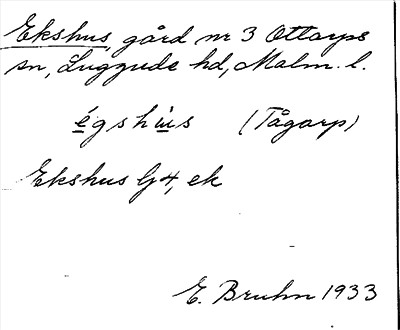 Ekshus, gård nr 3 Ottarps
sn, Luggude hd, Malm. l.
égshùs (Tågarp)
Ekshus G4, ek
E. Bruhn 1933